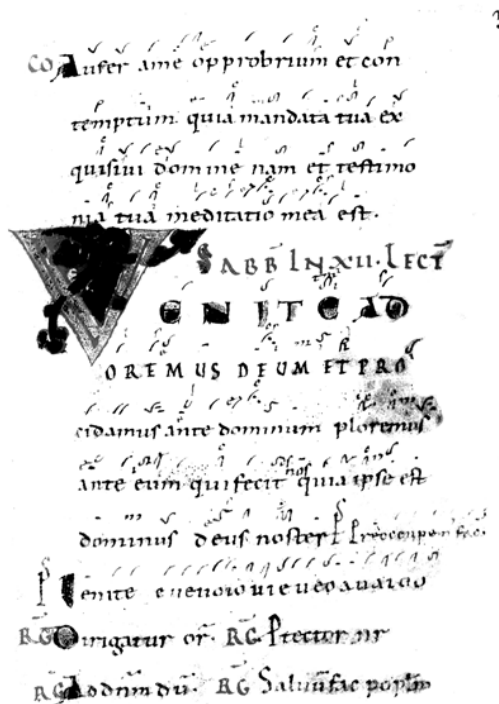 CO Aufer ame opprobrium et con
temptum quia mandata tua ex
quisivi domine nam et testimo
nia tua meditatio mea est.
SABB IN XII. LECT
VENITE AD
OREMUS DEUM ET PRO
cidamus ante dominum ploremus
ante eum qui fecit nos quia ipse est
dominus deus noster Ps Preoccupem fac
Ps Venite
RG Dirigatur or. RG Ptector nr
RG Ad dnm dū. RG Salvū fac poplm